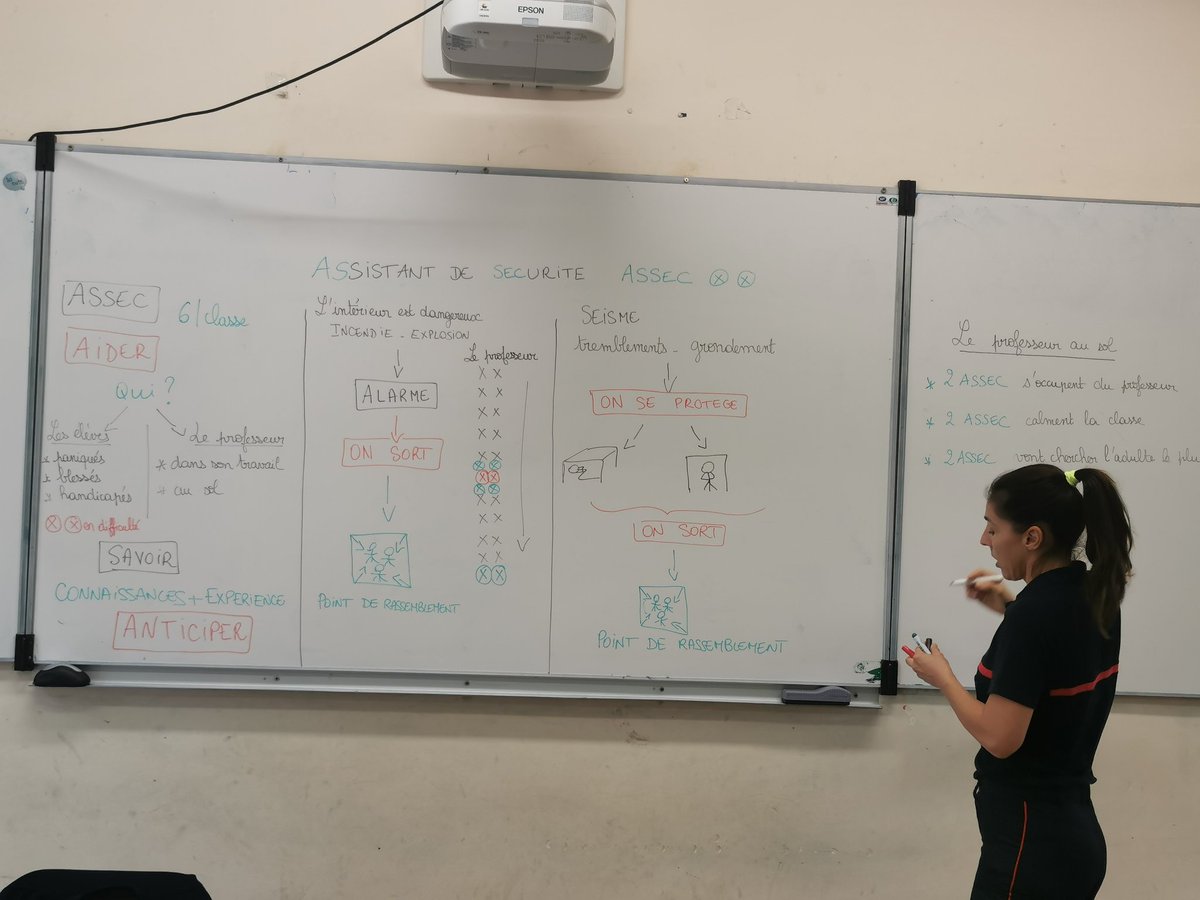 EPSON
ASSISTANT DE SECURITE ASSEC
ASSEC
6/classe
AIDER
Qui ?
Les élèves
* paniqués
* blessés
* handicapés
en difficulté
Le professeur
* dans son travail
* au sol
SAVOIR
CONNAISSANCES + EXPERIENCE
ANTICIPER
L'intérieur est dangereux
INCENDIE - EXPLOSION
ALARME
ON SORT
POINT DE RASSEMBLEMENT
Le professeur
X X
X X
X X
X X
X X
X X
X X
X X
X X
X X
X X
X X
SEISME
tremblements - grondement
ON SE PROTEGE
ON SORT
POINT DE RASSEMBLEMENT
Le professeur au sol
* 2 ASSEC s'occupent du professeur
* 2 ASSEC calment la classe
* 2 ASSEC vont chercher l'adulte le plu